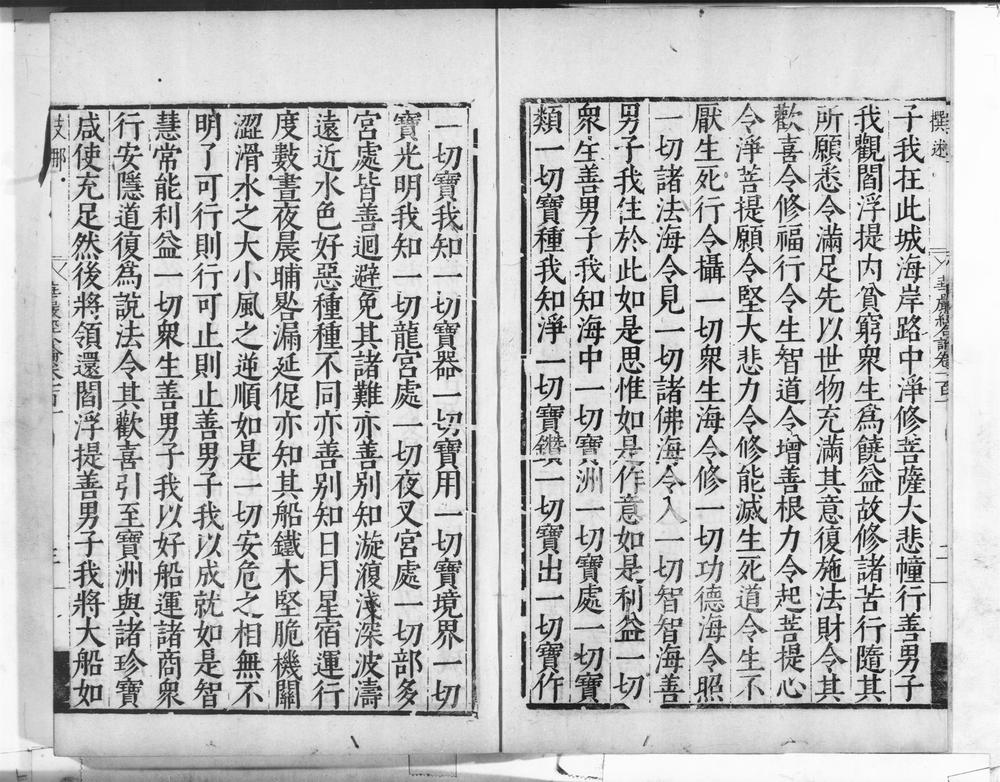 子我在此城海岸路中淨修菩薩大悲幢行善男子
我觀閻浮提內貧窮衆生爲饒益故修諸苦行隨其
所願悉令滿足先以世物充滿其意復施法財令其
歡喜令修福行令生智道令增善根力令起菩提心
令淨菩提願令堅大悲力令修能滅生死道令生不
厭生死行令攝一切衆生海令修一切功德海令照
一切諸法海令見一切諸佛海令入一切智智海善
男子我住於此如是思惟如是作意如是利益一切
衆生善男子我知海中一切寶洲一切寶處一切寶
類一切寶種我知淨一切寶鑽一切寶出一切寶作
一切寶我知一切寶器一切寶用一切寶境界一切
寶光明我知一切龍宮處一切夜叉宮處一切部多
宮處皆善迴避免其諸難亦善別知漩澓淺深波濤
遠近水色好惡種種不同亦善別知日月星宿運行
度數晝夜晨晡晷漏延促亦知其船鐵木堅脆機關
澀滑水之大小風之逆順如是一切安危之相無不
明了可行則行可止則止善男子我以成就如是智
慧常能利益一切衆生善男子我以好船運諸商衆
行安隱道復爲說法令其歡喜引至寶洲與諸珍寶
咸使充足然後將領還閻浮提善男子我將大船如